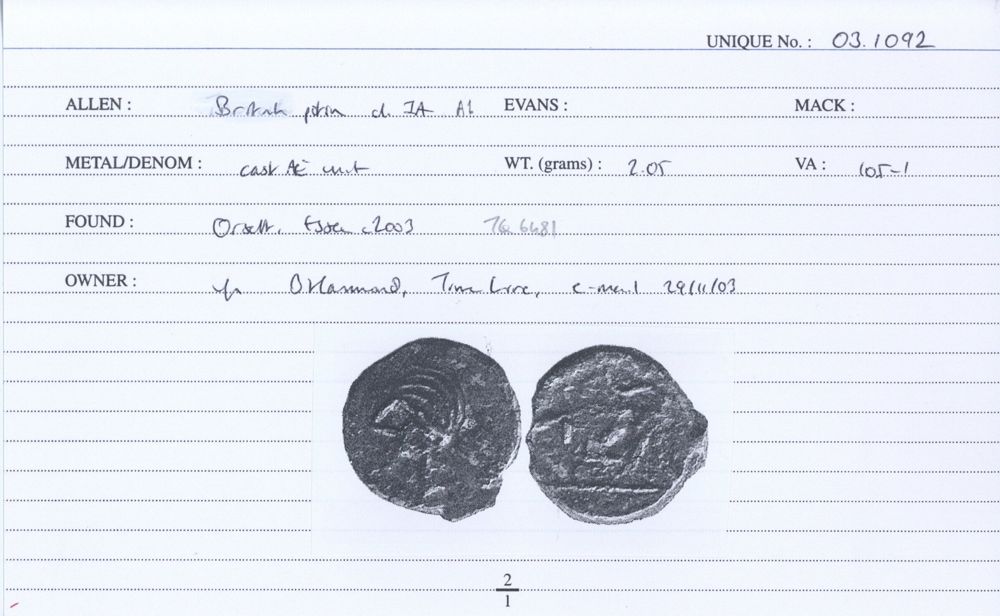 UNIQUE No. : 03.1092
ALLEN : British potin cl. IA A1 EVANS : MACK :
METAL/DENOM : cast Æ unit WT. (grams) : 2.05 VA : 105-1
FOUND : Orsett, Essex c2003 TQ 6681
OWNER : Hammond, Time Line, e-mail 29/11/03
2
1